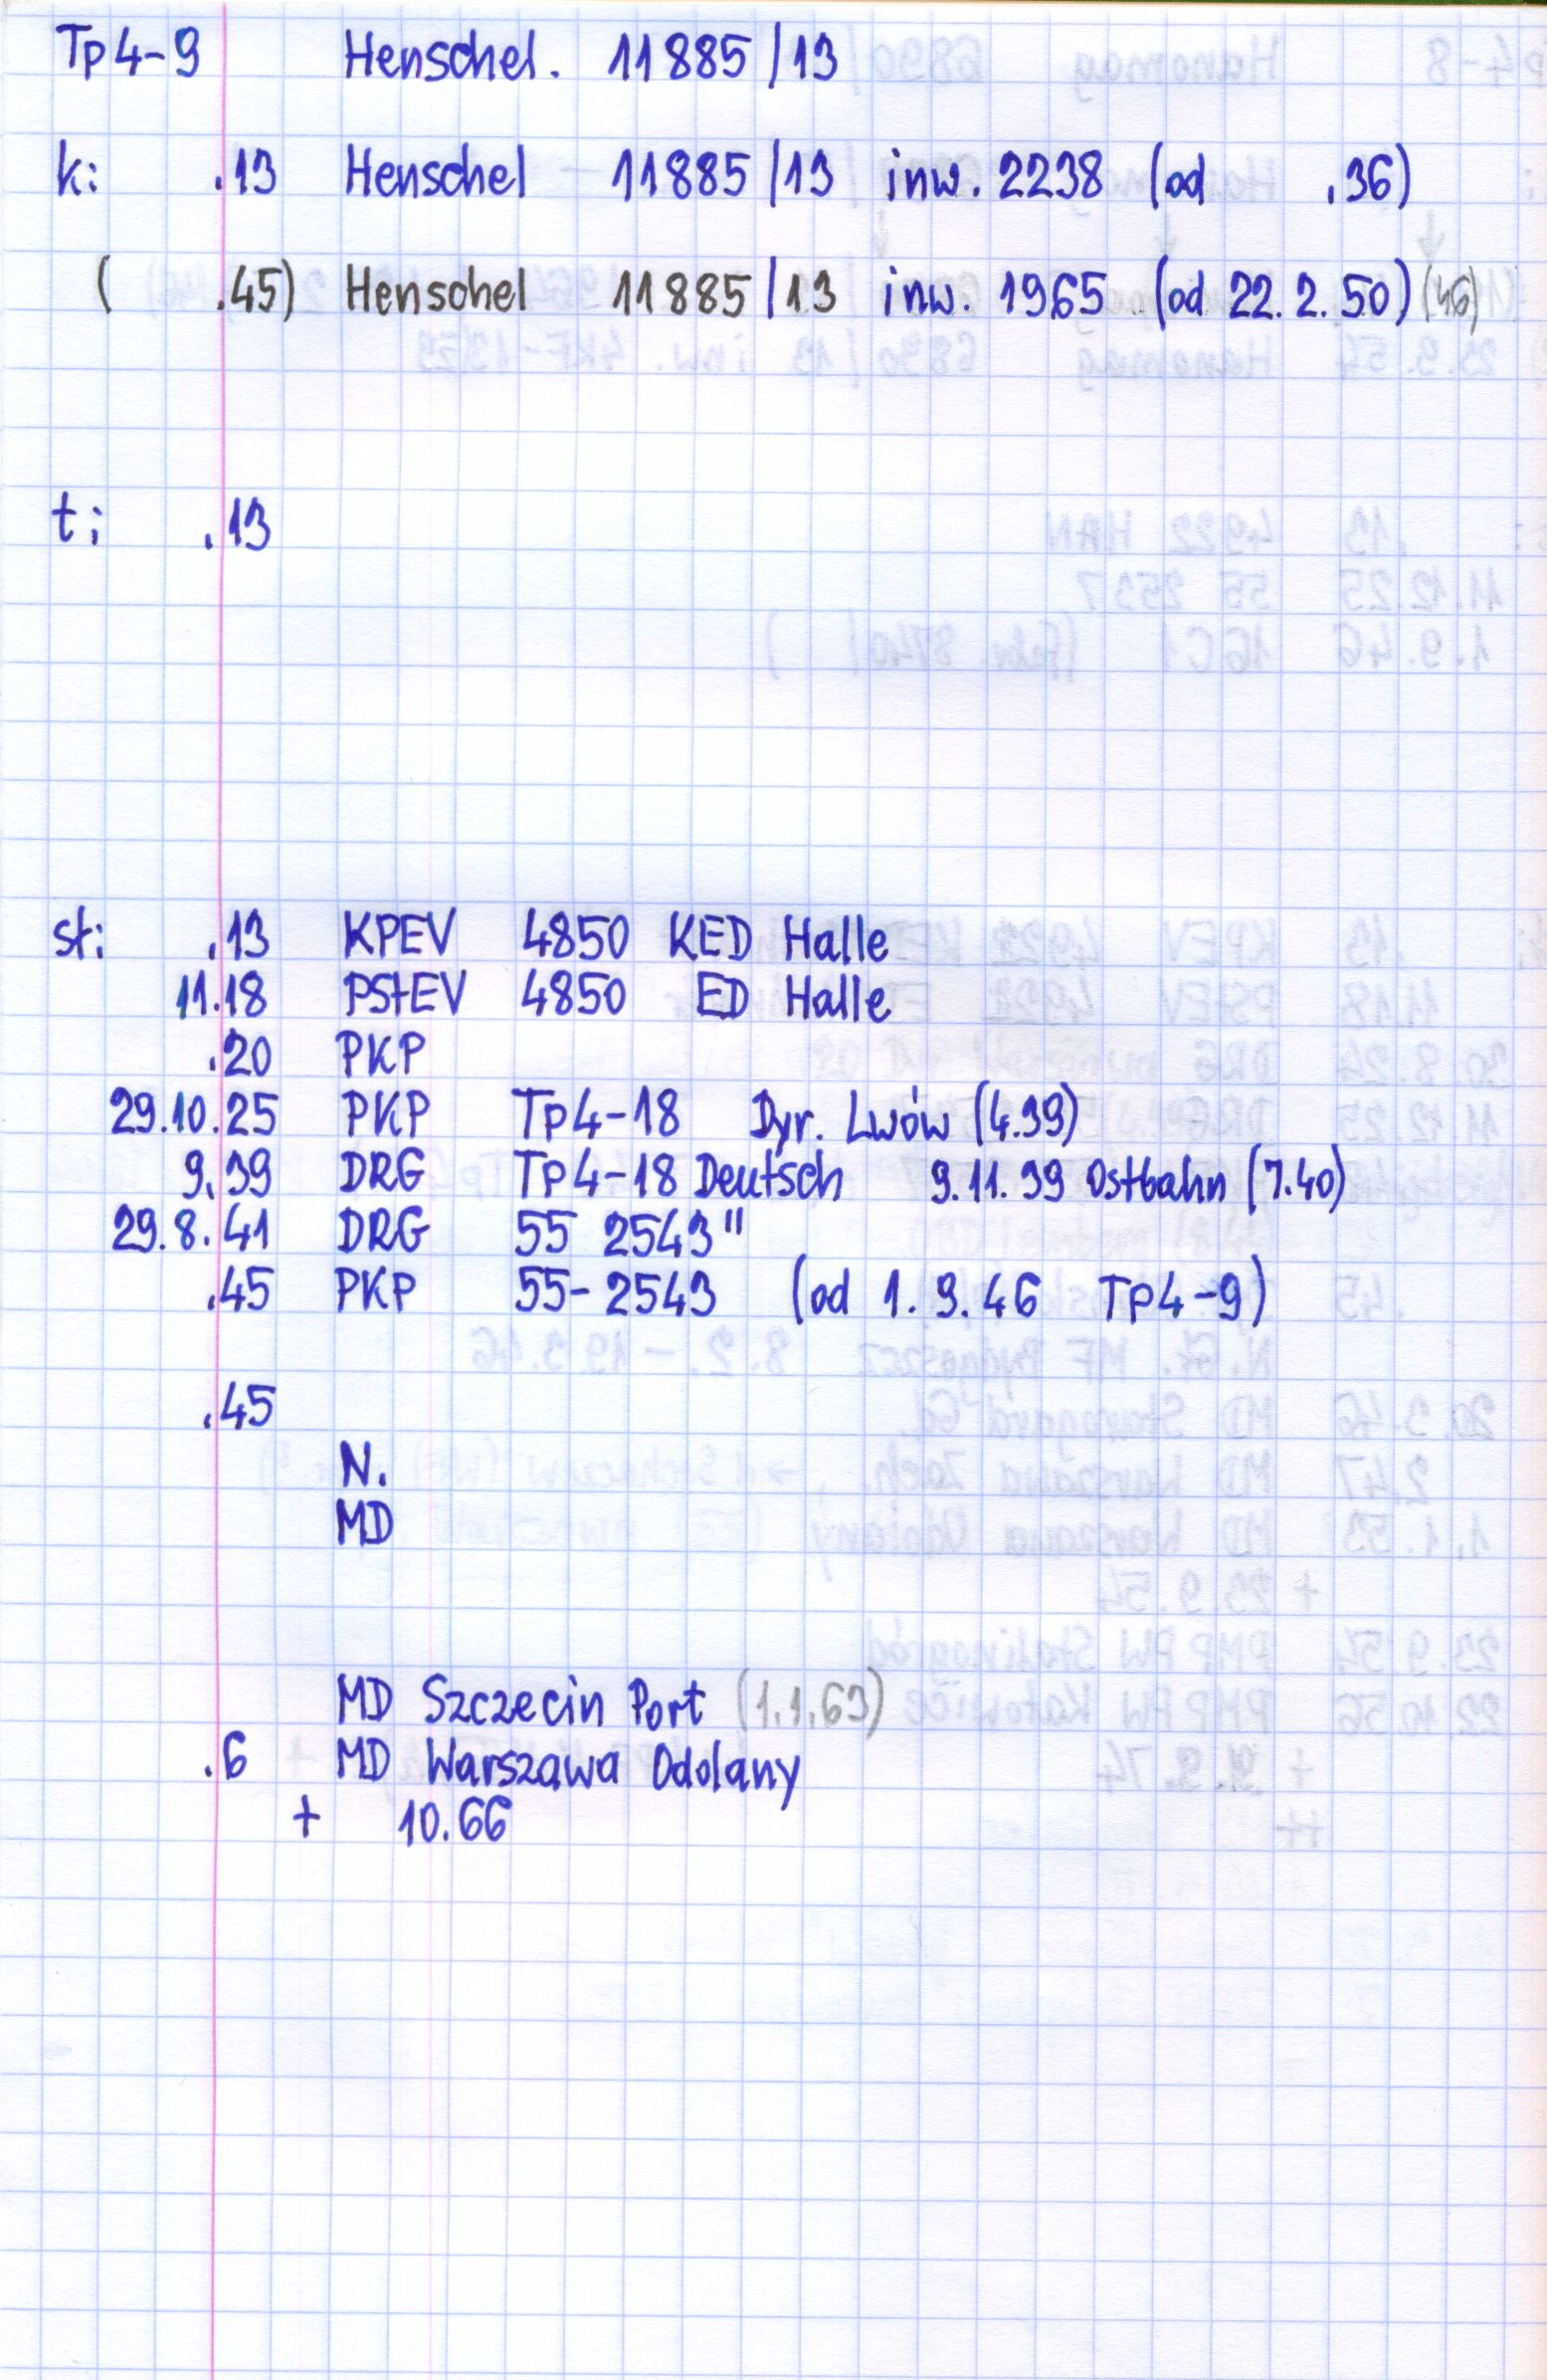 Tp4-9 Henschel. 11885/13
k: .13 Henschel 11885/13 inw. 2238 (od .36)
( .45) Henschel 11885/13 inw. 1965 (od 22.2.50) (46)
t: .13
st: .13 KPEV 4850 KED Halle
11.18 PStEV 4850 ED Halle
.20 PKP
29.10.25 PKP Tp4-18 Dyr. Lwów (4.39)
9.39 DRG Tp4-18 Deutsch 9.11.39 Ostbahn (7.40)
29.8.41 DRG 55 2543"
.45 PKP 55-2543 (od 1.9.46 Tp4-9)
.45
N.
MD
MD Szczecin Port (1.1.63)
.6 MD Warszawa Odolany
+ 10.66